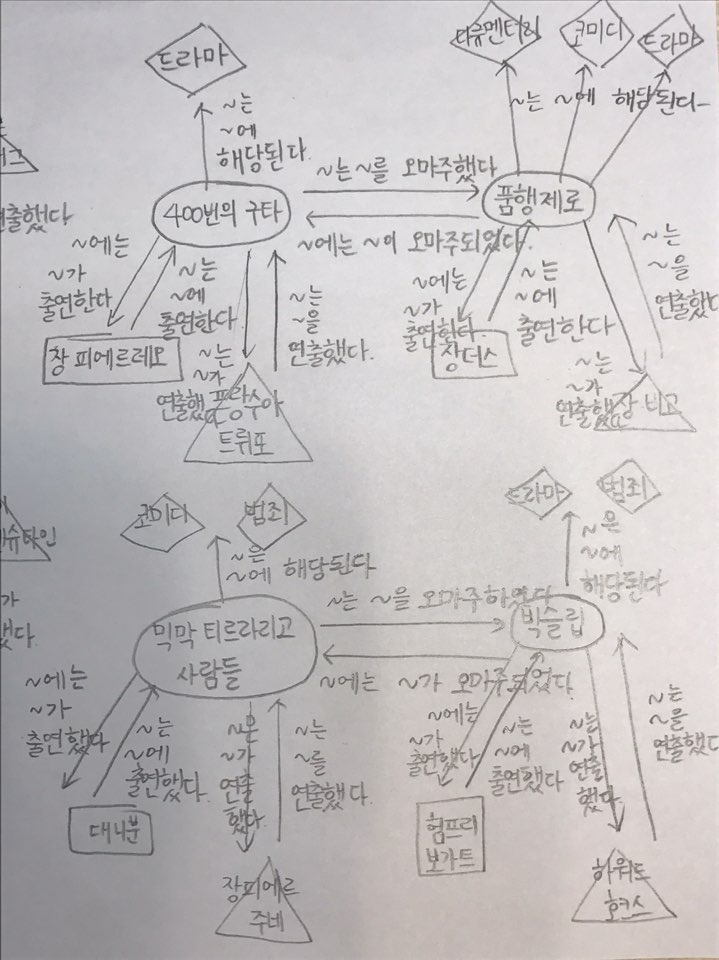 드라마
다큐멘터리 코미디 드라마
~는
~에
해당된다.
~는 ~에 해당된다
~는 ~를 오마주했다
400번의 구타
품행제로
~에는 ~이 오마주되었다.
출했다
~에는
~가
출연한다
~는
~에
출연한다
~는
~가
연출했다
~는
~을
연출했다.
~에는
~가
출연한다
~는
~에
출연한다
~는
~가
연출했다
~는
~을
연출했다
창 피에르레오
프랑수아
트뤼포
장더스
장 비고
코미디 범죄
드라마 범죄
슈타인
~은
~에 해당된다
~은
~에
해당된다
~는 ~을 오마주하였다
믹막 티르라리고
사람들
빅슬립
~에는 ~가 오마주되었다.
가
했다.
~에는
~가
출연했다
~는
~에
출연했다.
~은
~가
연출
했다.
~는
~를
연출했다.
~에는
~가
출연했다
~는
~에
출연했다
~는
~가
연출
했다.
~는
~을
연출했다
대니분
장피에르
주네
험프리
보가트
하워드
호크스